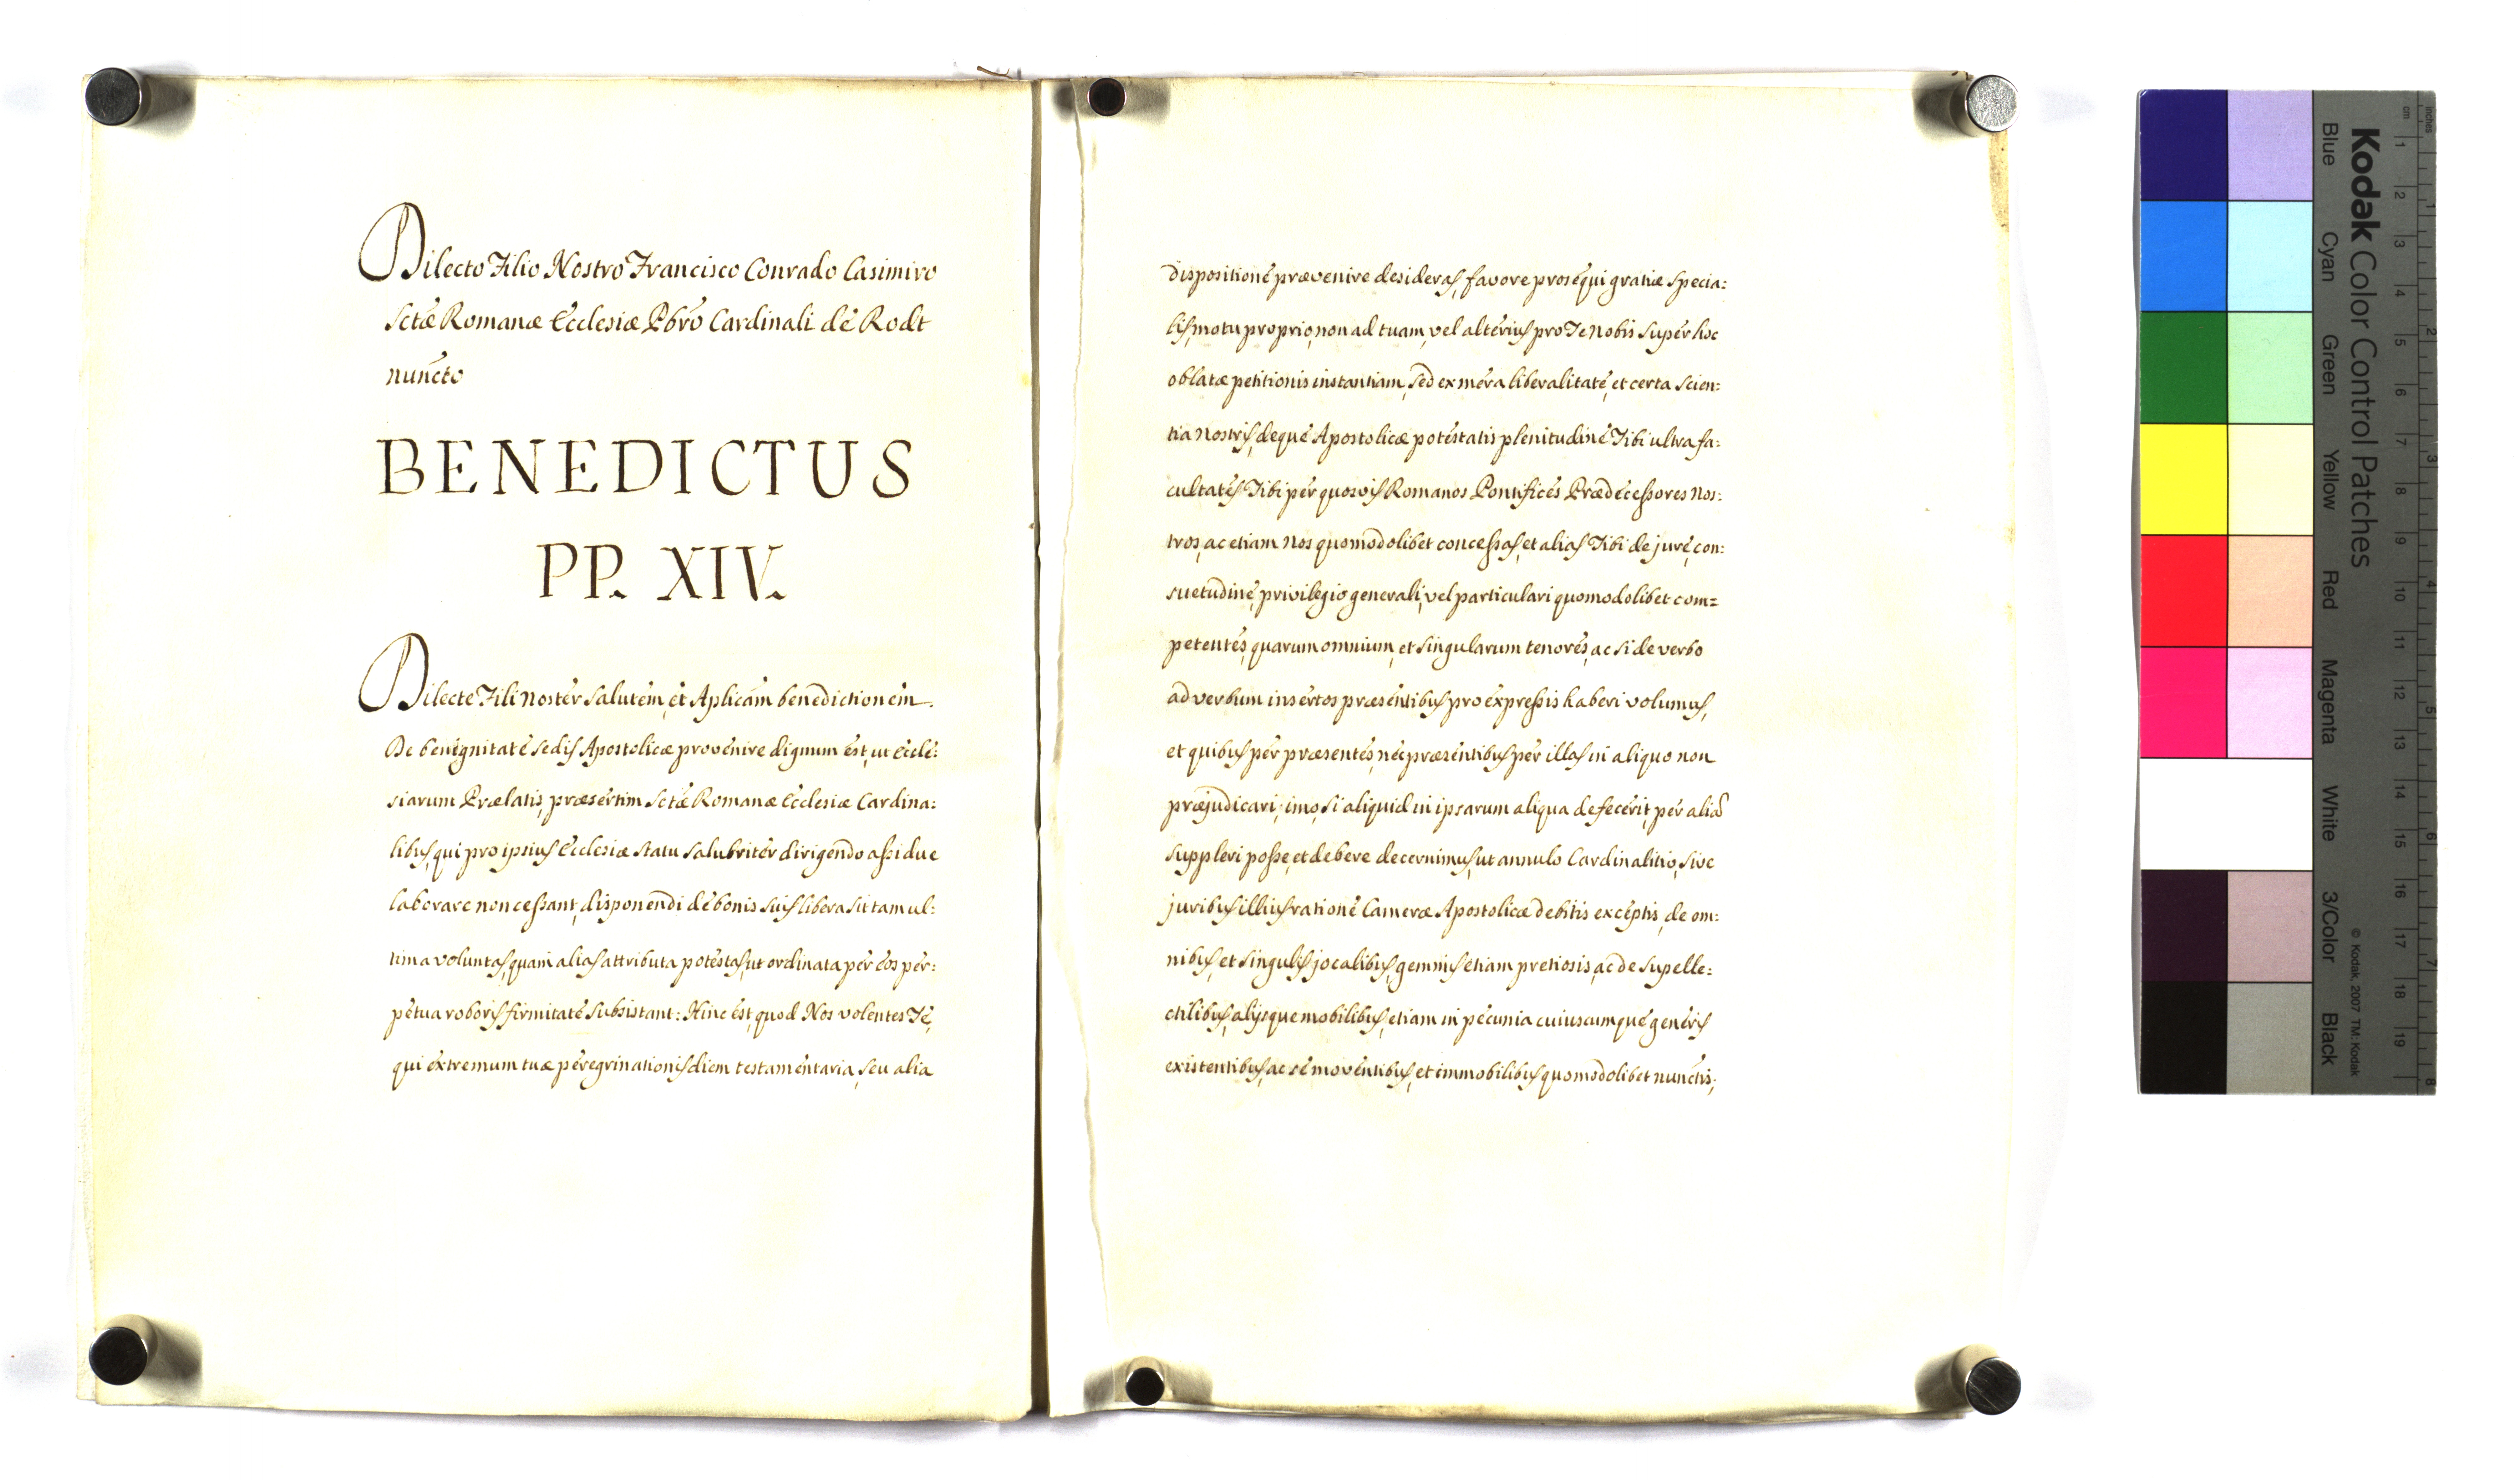 Dilecto Filio Nostro Francisco Conrado Casimiro
Sctæ Romanæ Ecclesiæ Pbro Cardinali de Rodt
nuncto
BENEDICTUS
PP. XIV.
Dilecte Fili noster salutem, et Aplicam benedictionem.
De benignitate Sedis Apostolicæ provenire dignum est, ut Eccle:
siarum Prælatis, præsertim Sctæ Romanæ Ecclesiæ Cardina:
libus, qui pro ipsius Ecclesiæ statu salubriter dirigendo assidue
laborare non cessant, disponendi de bonis suis libera sit tam ul:
tima voluntas, quam alias attributa potestas, ut ordinata per eos per:
petua roboris firmitate subsistant: Hinc est, quod Nos volentes Te,
qui extremum tuæ peregrinationis diem testamentaria, seu alia
dispositione prævenire desideras, favore prosequi gratiæ specia:
lis, motu proprio, non ad tuam, vel alterius pro Te nobis super hoc
oblatæ petitionis instantiam, sed ex mera liberalitate, et certa scien:
tia nostris, deque Apostolicæ potestatis plenitudine Tibi ultra fa:
cultates Tibi per quosvis Romanos Pontifices Prædecessores Nos:
tros, ac etiam Nos quomodolibet concessas, et alias Tibi de jure, con:
suetudine, privilegio generali, vel particulari quomodolibet com=
petentes, quarum omnium, et singularum tenores, ac si de verbo
ad verbum insertos præsentibus pro expressis haberi volumus,
et quibus per præsentes, nec præsentibus per illas in aliquo non
præjudicari; imo, si aliquid in ipsarum aliqua defecerit, per alias
suppleri posse, et debere decernimus, ut annulo Cardinalitio, sive
juribus illius ratione Cameræ Apostolicæ debitis exceptis, de om:
nibus, et singulis jocalibus, gemmis etiam pretiosis, ac de supelle:
ctilibus, alijsque mobilibus, etiam in pecunia cuiuscumque generis
existentibus, ac se moventibus, et immobilibus quomodolibet nunctis,
Kodak Color Control Patches
Blue Cyan Green Yellow Red Magenta White 3/Color Black
© Kodak, 2007 TM: Kodak
inches 1 2 3 4 5 6 7 8
cm 1 2 3 4 5 6 7 8 9 10 11 12 13 14 15 16 17 18 19